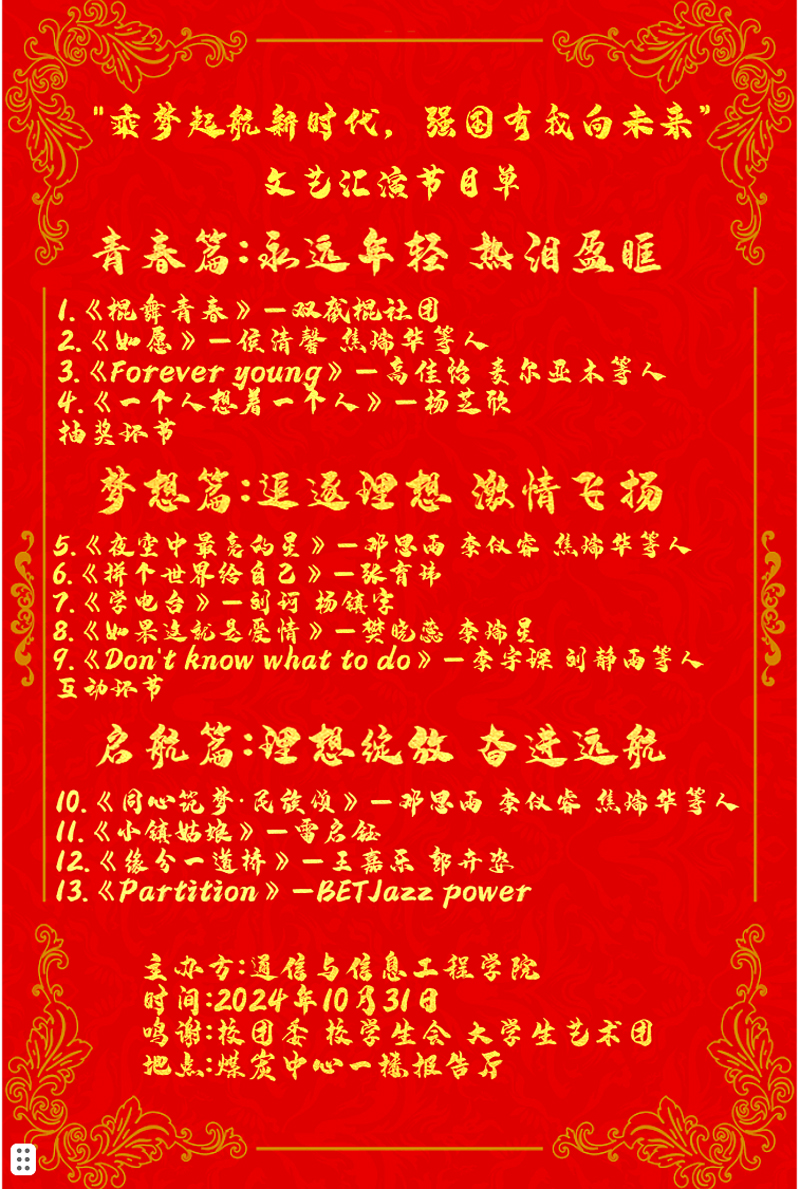 "乘梦起航新时代，强国有我向未来"
文艺汇演节目单
青春篇:永远年轻 热泪盈眶
1.《棍舞青春》—双截棍社团
2.《如愿》—侯清馨 焦瑞华等人
3.《Forever young》—高佳怡 麦尔亚木等人
4.《一个人想着一个人》—杨芝欣
抽奖环节
梦想篇:追逐理想 激情飞扬
5.《夜空中最亮的星》—邓思雨 李仪睿 焦瑞华等人
6.《拼个世界给自己》—张育玮
7.《学电台》—刘珂 杨镇宇
8.《如果这就是爱情》—樊晓蕊 李瑞星
9.《Don't know what to do》—李宇课 刘静雨等人
互动环节
启航篇:理想绽放 奋进远航
10.《同心筑梦·民族颂》—邓思雨 李仪睿 焦瑞华等人
11.《小镇姑娘》—雷启钰
12.《缘分一道桥》—王嘉乐 郭卉姿
13.《Partition》—BETJazz power
主办方:通信与信息工程学院
时间:2024年10月31日
鸣谢:校团委 校学生会 大学生艺术团
地点:煤炭中心一楼报告厅